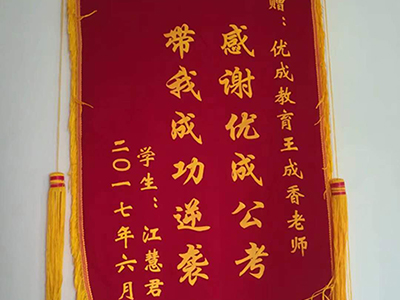 赠：优成教育王成香老师
感谢优成公考
带我成功逆袭
学生：江慧君
二〇一七年六月